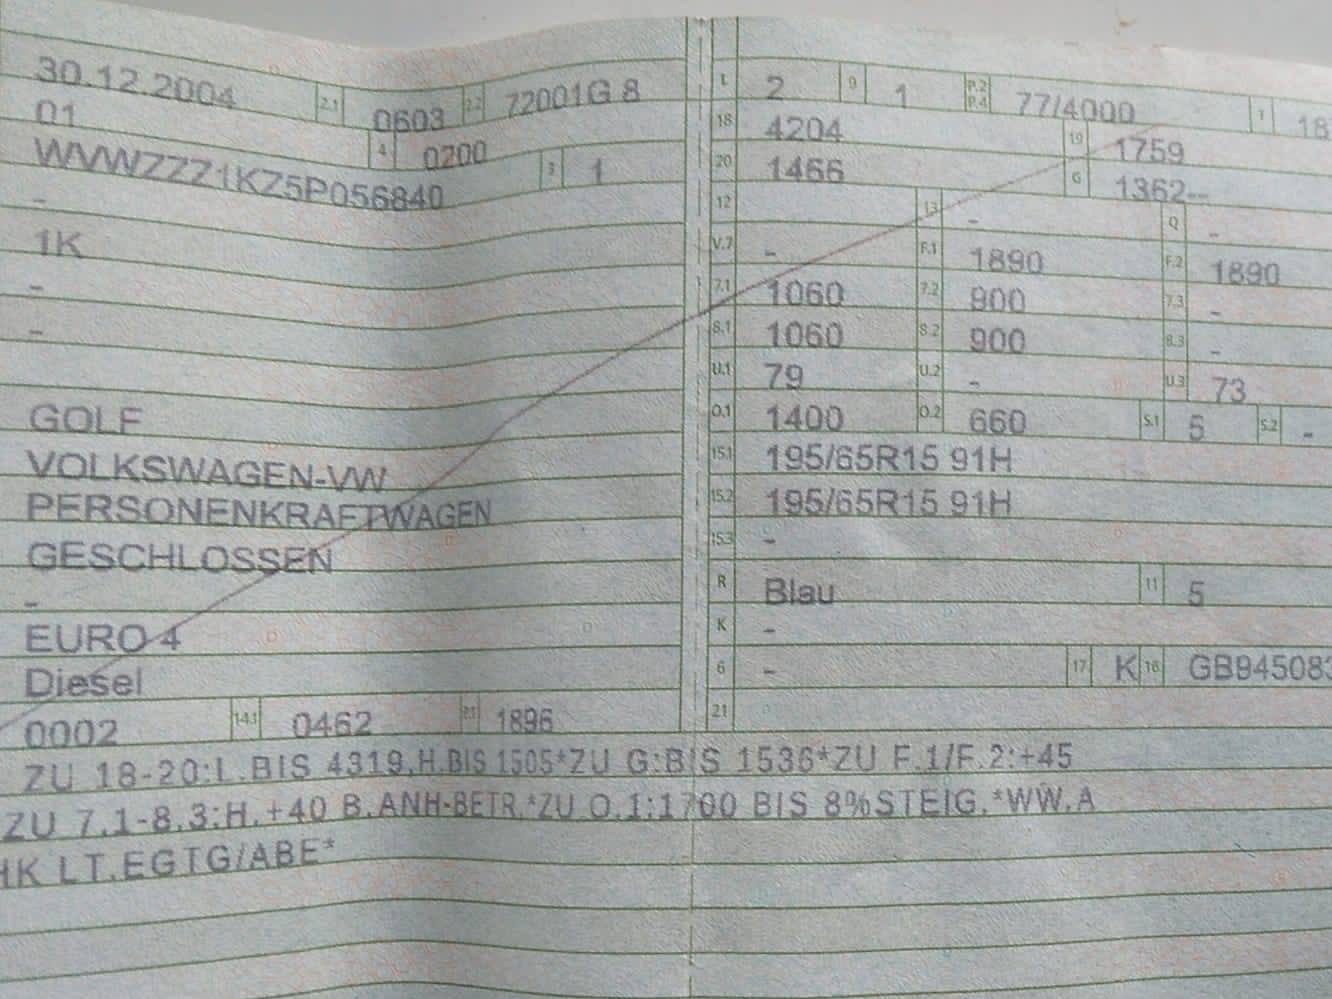 30.12.2004 2.1 0603 2.2 72001G 8
01 4 0200
WVWZZZ1KZ5P056840 3 1
-
1K
-
-
GOLF
VOLKSWAGEN-VW
PERSONENKRAFTWAGEN
GESCHLOSSEN
-
EURO 4
Diesel
0002 14.1 0462 P.1 1896
L 2 9 1 P.2 P.4 77/4000 T 18
18 4204 19 1759
20 1466 G 1362--
12 13 - Q -
V.7 - F.1 1890 F.2 1890
7.1 1060 7.2 900 7.3 -
8.1 1060 8.2 900 8.3 -
U.1 79 U.2 - U.3 73
O.1 1400 O.2 660 S.1 5 S.2 -
15.1 195/65R15 91H
15.2 195/65R15 91H
15.3 -
R Blau 11 5
K -
6 - 17 K 16 GB945083
21
ZU 18-20:L.BIS 4319,H.BIS 1505*ZU G:BIS 1536*ZU F.1/F.2:+45
ZU 7.1-8.3:H.+40 B.ANH-BETR.*ZU O.1:1700 BIS 8%STEIG.*WW.A
HK LT.EGTG/ABE*